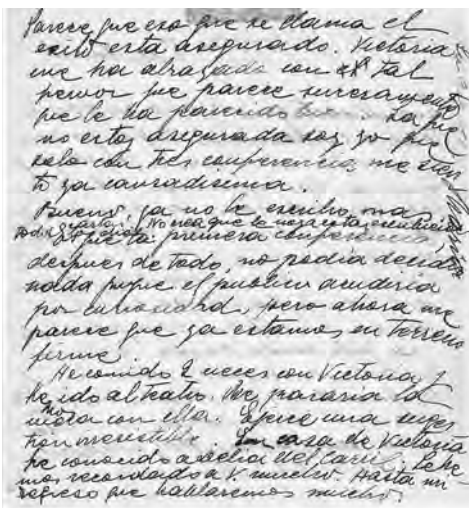 Parece que eso que se llama el
exito esta asegurado. Victoria
me ha abrazado con tal
fervor que parece sinceramente
que le ha parecido bien. La que
no estoy asegurada soy yo que
solo con tres conferencias me sien
to ya cansadisima.
Bueno, ya no le escribo mas
primera conferencia,
despues de todo, no podia decidir
nada pues el publico acudiria
por curiosidad, pero ahora me
parece que ya estamos en terreno
firme.
He comido 2 veces con Victoria y
he ido al teatro. Me pasaria la
vida con ella. Ejerce una suges
tion irresistible. En casa de Victoria
he conocido a Delia del Carril. Le he
mos recordado a V. mucho. Hasta mi
regreso que hablaremos mucho.